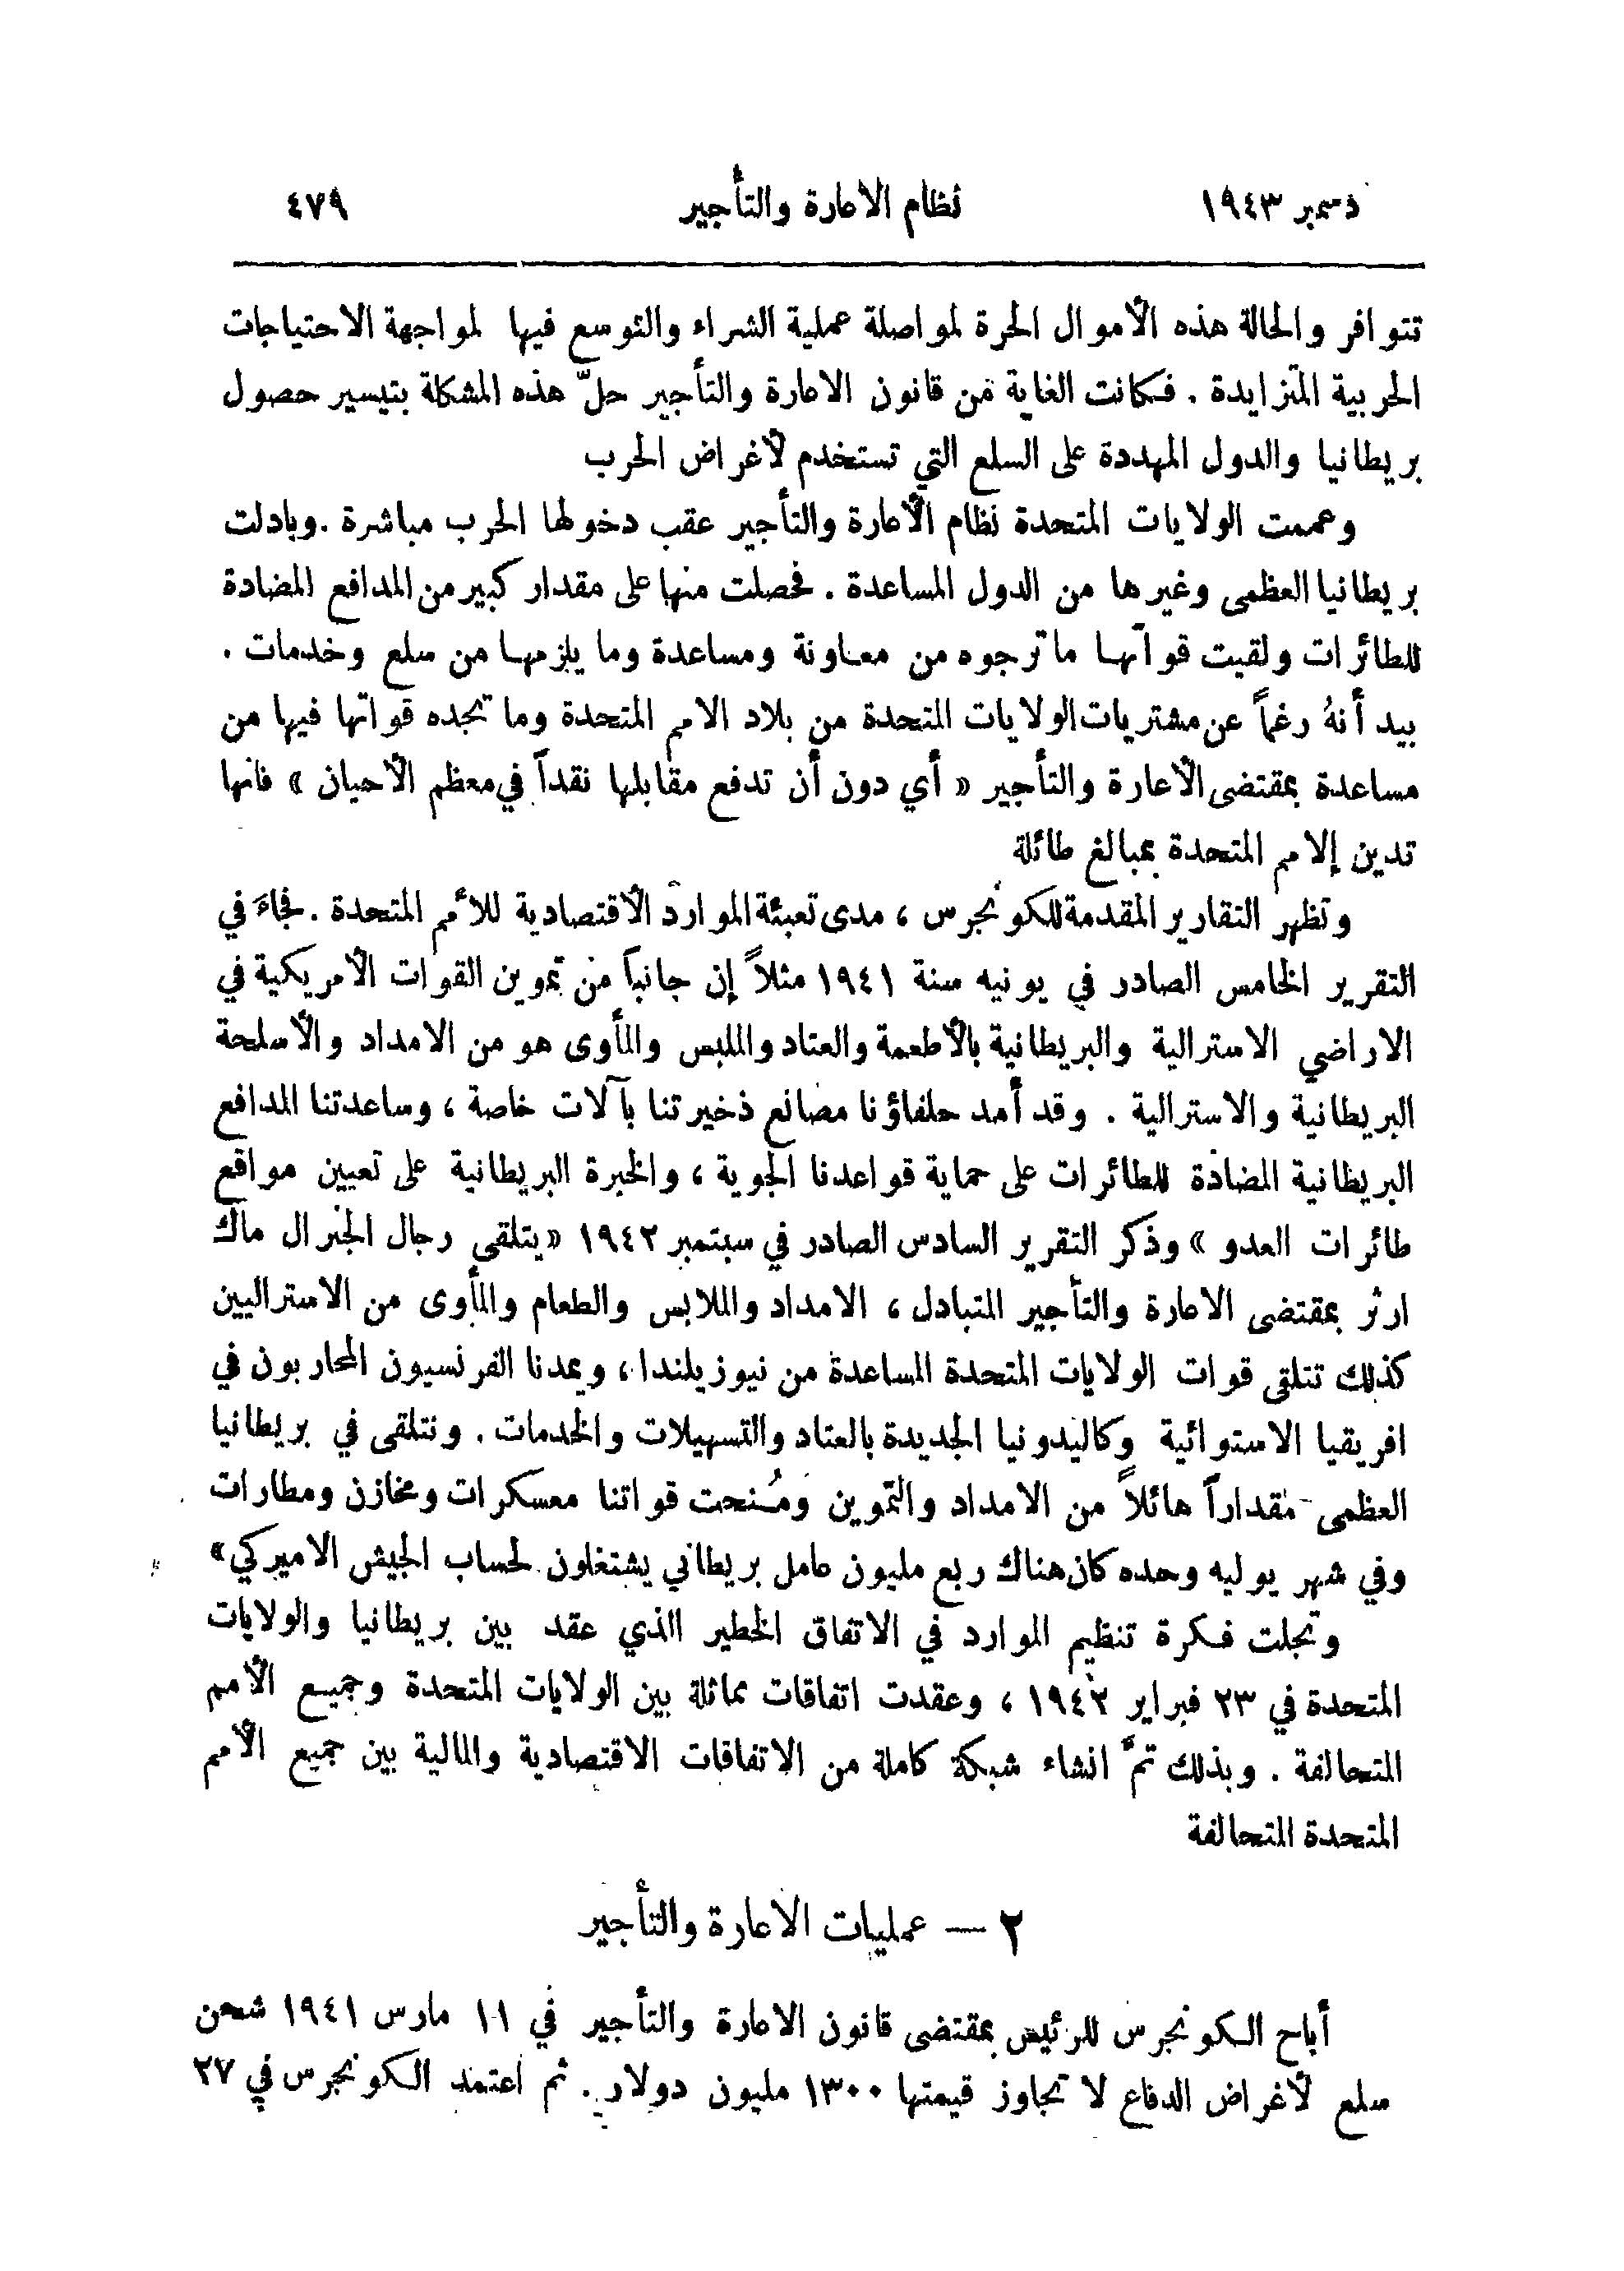 دسمبر ١٩٤٣ نظام الاعارة والتأجير ٤٧٩
تتوافر والحالة هذه الأموال الحرة لمواصلة عملية الشراء والتوسع فيها لمواجهة الاحتياجات
الحربية المتزايدة . فكانت الغاية من قانون الاعارة والتأجير حلّ هذه المشكلة بتيسير حصول
بريطانيا والدول المهددة على السلع التي تستخدم لأغراض الحرب
وعممت الولايات المتحدة نظام الأعارة والتأجير عقب دخولها الحرب مباشرة . وبادلت
بريطانيا العظمى وغيرها من الدول المساعدة . فحصلت منها على مقدار كبير من المدافع المضادة
للطائرات ولقيت قواتها ما ترجوه من معاونة ومساعدة وما يلزمها من سلع وخدمات .
بيد أنهُ رغماً عن مشتريات الولايات المتحدة من بلاد الامم المتحدة وما تجده قواتها فيها من
مساعدة بمقتضى الأعارة والتأجير « أي دون أن تدفع مقابلها نقداً في معظم الأحيان » فانها
تدين إلامم المتحدة بمبالغ طائلة
وتظهر التقارير المقدمة للكونجرس ، مدى تعبئة الموارد الأقتصادية للأمم المتحدة . فجاءَ في
التقرير الخامس الصادر في يونيه سنة ١٩٤١ مثلاً إن جانباً من تموين القوات الأمريكية في
الاراضي الاسترالية والبريطانية بالأطعمة والعتاد والملبس والمأوى هو من الامداد والأسلحة
البريطانية والاسترالية . وقد أمد حلفاؤنا مصانع ذخيرتنا بآلات خاصة ، وساعدتنا المدافع
البريطانية المضادة للطائرات على حماية قواعدنا الجوية ، والخبرة البريطانية على تعيين مواقع
طائرات العدو » وذكر التقرير السادس الصادر في سبتمبر ١٩٤٢ « يتلقى رجال الجنرال ماك
ارثر بمقتضى الاعارة والتأجير المتبادل ، الامداد والملابس والطعام والمأوى من الاستراليين
كذلك تتلقى قوات الولايات المتحدة المساعدة من نيوزيلندا ، ويمدنا الفرنسيون المحاربون في
افريقيا الاستوائية وكاليدونيا الجديدة بالعتاد والتسهيلات والخدمات . ونتلقى في بريطانيا
العظمى مقداراً هائلاً من الامداد والتموين ومُنحت قواتنا معسكرات ومخازن ومطارات
وفي شهر يوليه وحده كان هناك ربع مليون عامل بريطاني يشتغلون لحساب الجيش الاميركي »
وتجلت فكرة تنظيم الموارد في الاتفاق الخطير االذي عقد بين بريطانيا والولايات
المتحدة في ٢٣ فبراير ١٩٤٢ ، وعقدت اتفاقات مماثلة بين الولايات المتحدة وجميع الأمم
المتحالفة . وبذلك تمَّ انشاء شبكة كاملة من الاتفاقات الاقتصادية والمالية بين جميع الأمم
المتحدة المتحالفة
٢ — عمليات الاعارة والتأجير
أباح الكونجرس للرئيس بمقتضى قانون الاعارة والتأجير في ١١ مارس ١٩٤١ شحن
سلع لأغراض الدفاع لا تجاوز قيمتها ١٣٠٠ مليون دولار . ثم اعتمد الكونجرس في ٢٧